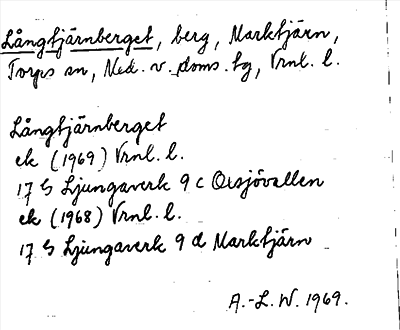 Långtjärnberget, berg, Marktjärn,
Torps sn, Med. v. doms. tg, Vrnl. l.
Långtjärnberget
ek (1969) Vrnl. l.
17 G Ljungaverk 9 c Orsjövallen
ek (1968) Vrnl. l.
17 G Ljungaverk 9 d Marktjärn
A.-L. W. 1969.